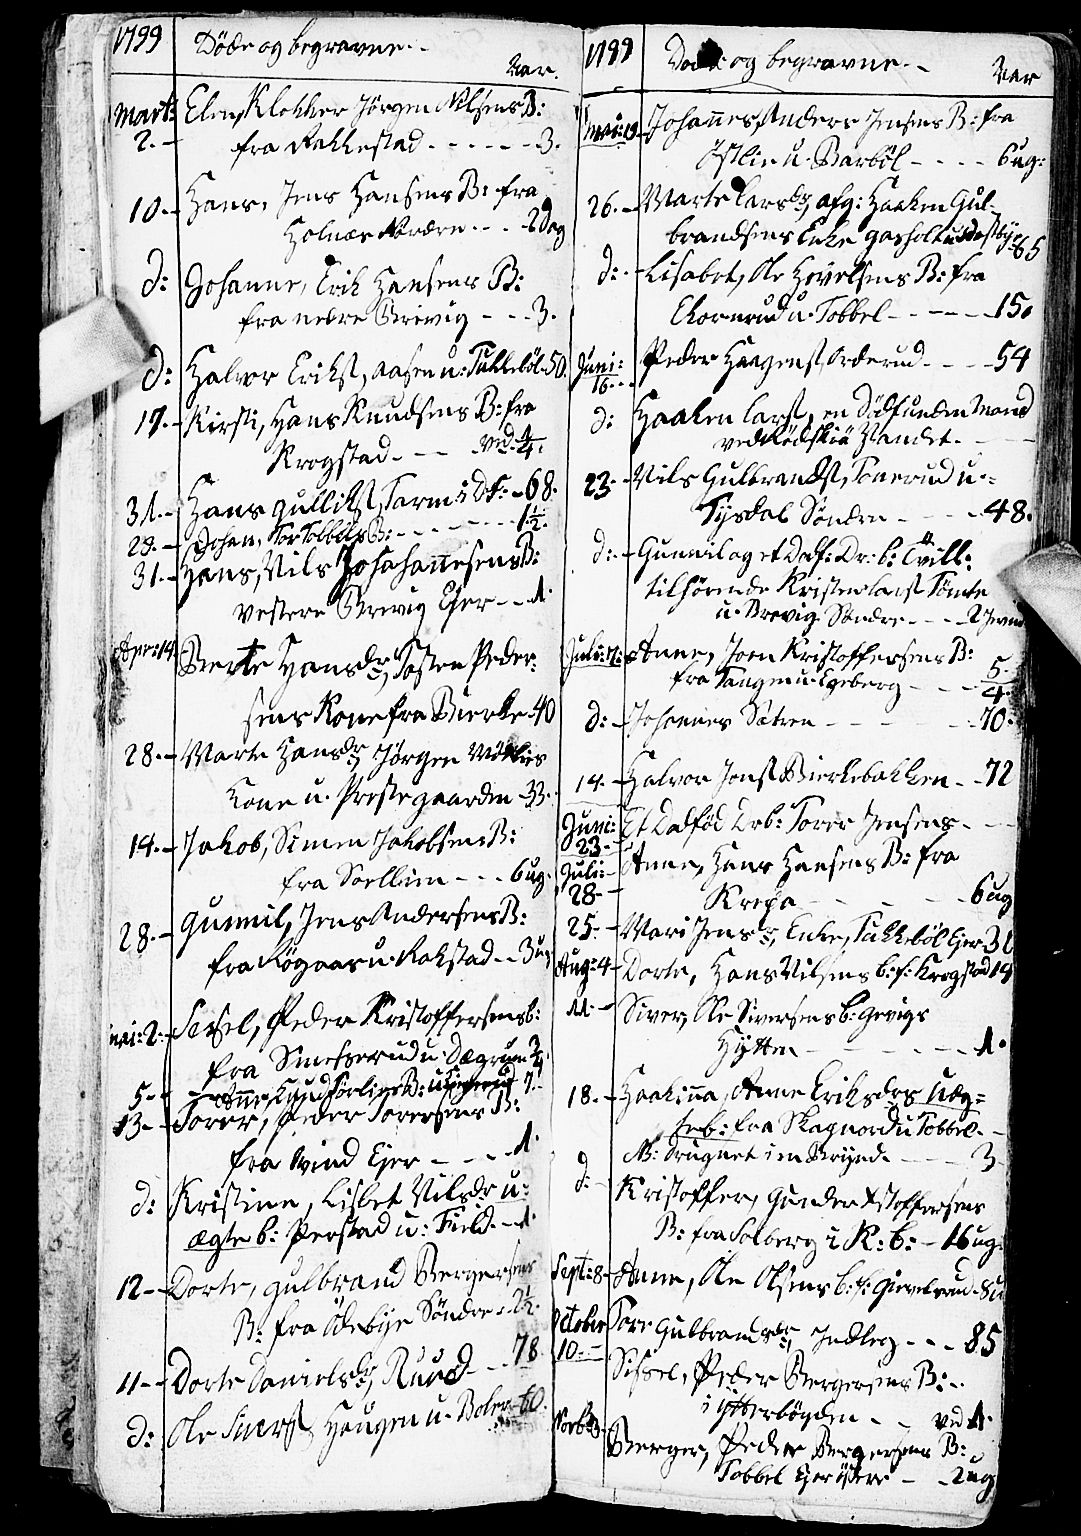 1799 Döde og begravne.
Aar.
Mart: 2. Elen, Klokker Jörgen Nilsens B:
fra Rakkestad - - - 3.
10. Hans, Jens Hansens B: fra
Holnæs Nordre - - 2 Dag
d: Johanne, Erik Hansens B:
fra nedre Brevig - - 3.
d: Halvor Erikss, Aasen u: Takkeböl 50.
17. Kirsti, Hans Knudsens B: fra
Krogstad - - - ved 1/4.
31. Hans Gulliks, 68.
29. Johan, B: - - - 1 1/2.
31. Hans, Nils Johahannesens B:
vestere Brevig Ejer - - 1.
Apr: 14. Berte Hansdr, Tosten Peder-
sens Kone fra Bierke 40
28. Marte Hansdr, Jörgen
Kone u. Prestegaarden 33.
14. Jakob, Simen Jakobsens B:
fra Soellien - - - 6 ug.
28. Gunnil, Jens Andersens B:
fra Rögaas u. Rakstad - - 3 ug
Mai: 2. Sissel, Peder Kristoffersens b:
fra Smedserud u: Dægrum 3/4.
5. Anne, 7.
13. Torer, Peder Torersens B:
fra Wind Ejer - - - 1.
d: Kristine, Lisbet Nilsdr u-
ægte b: Perstad u: Field. - 1.
12. Dorte, Gulbrand Bergersens
B: fra Ödebye Söndre 2 1/2.
11. Dorte Danielsdr, Ruud - - 78
d: Ole Siverss, Haugen u. Boler 60.
1799 Döde og begravne.
Aar
Mai: 19. Johannes, Anders Jensens B: fra
Östlie u. Barböl - - - 6 ug:
26. Marte Larsdr, afg: Haaken Gul-
brandsens Enke Gasholt u. Vestbye 65
d: Lisabet, Ole Hövelsens B: fra
Skornrud u. Tobbel - - - 15.
Juni: 16. Peder Haagenss, Orderud - - - 54
d: Haaken Larss, en Dödfunden Mand
ved Rödskiö Vandet.
23. Nils Gulbrandss, Tonerud u-
Tysdal Söndre - - - 48.
d: Gunnil og et Dödf: Dr: b: Tvill:
tilhörende Kristen Larss Tömte
u. Brevig Söndre - - - 2
Juli: 7. Anne, Joen Kristoffersens B:
fra Tangen u. Egeberg - - - 5/4.
d: Johannes Sætren - - - 70.
14. Halvor Jonss Bierkebakken - - 72
Juni: 23. Et Dødföd Drb: Torer Jensens - -
Juli: 28. Anne, Hans Hansens B: fra
Krepa - - - 6 ug
25. Mari Jensdr, Enke, Takkeböl Ejer
Aug: 4. Dorte, Hans Nilsens b: f: Krogstad 14
11. Siver, Ole Siversens b: Gevigs
Hytten - - - 1.
18. Haakinna, Anne Eriksdrs Uæg-
teb: fra Skagnord u Tobbel. -
N: Drugnet i en Brynd. - - - 3
d: Kristoffer, Gunder Xstoffersens
B: fra Solberg i K: b: - 16 ug.
Sept: 8. Anne, Ole Olsens b: f: Gievelsrud 8 u
October 10. Tore Gulbrandsdr, Indleg - - 85
Sissel, Peder Bergersens B: -
i Ytterbögden - - ved 1.
Novb: 3. Berger, Peder Bergersens B:
Tobbel Ejer östere - - 2 ug